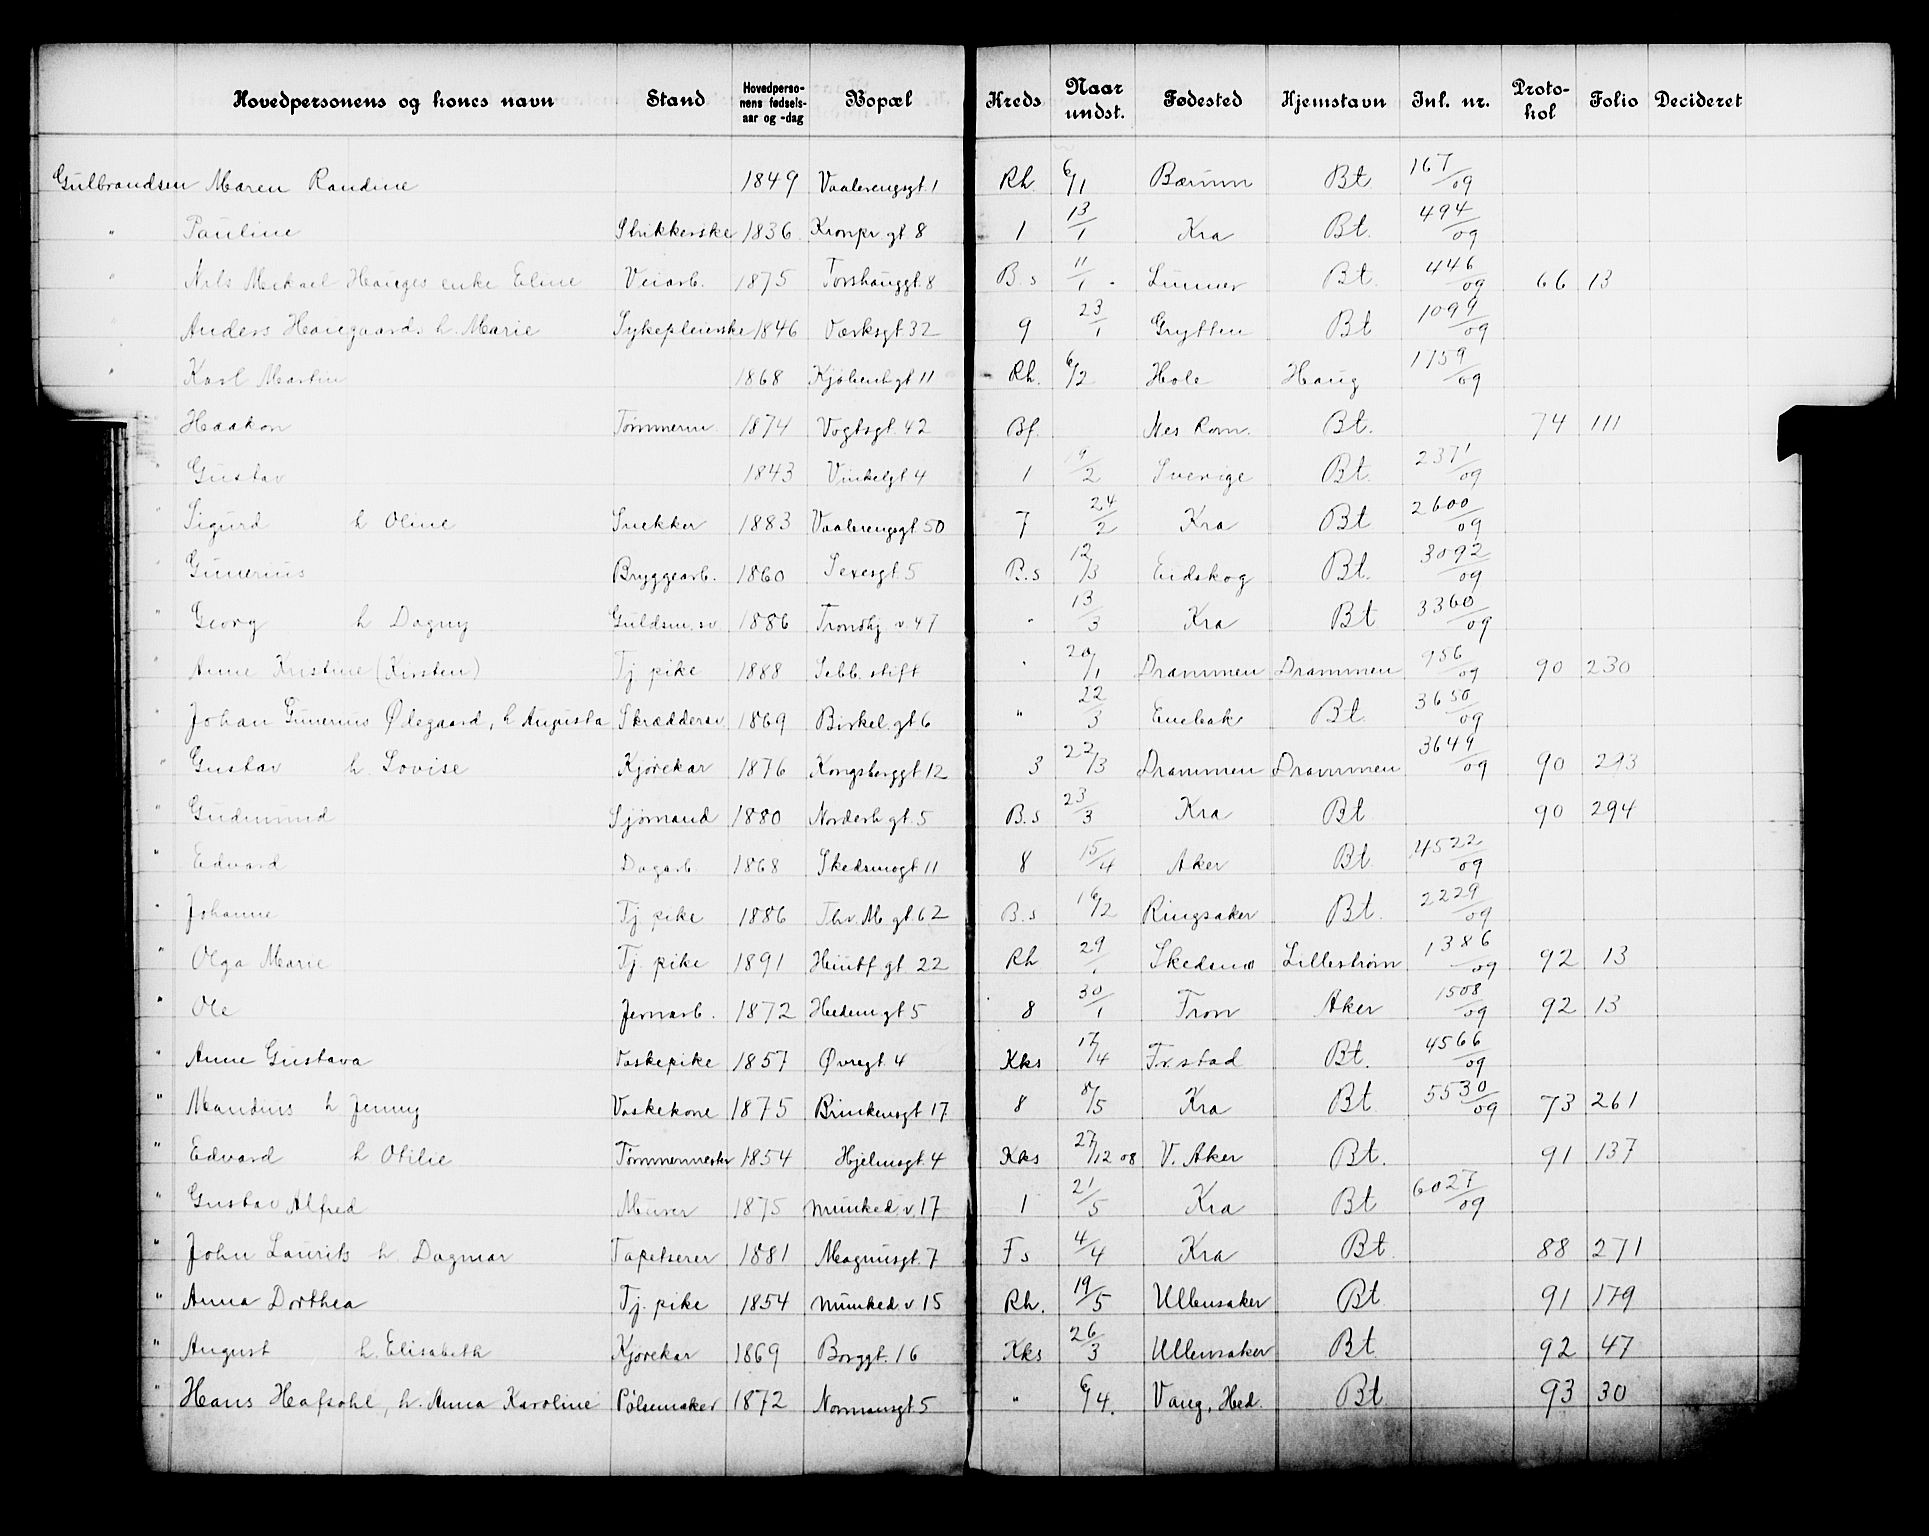 Hovedpersonens og kones navn Stand Hovedperso-nens fødsels-aar og -dag Bopæl Kreds Naar undst. Fødested Hjemstavn Inl. nr. Proto-kol Folio Decideret
Gulbrandsen Maren Randine 1849 Vaalerengsgt. 1 Rh. 6/1 Bærum Bt. 167/09
" Pauline Strikkerske 1836 Kronpr gt 8 1 13/1 Kra Bt. 494/09
" Nils Mikael Hauges enke Eline Veiarb. 1875 Torshauggt. 8 B.s 11/1 Lunner Bt. 446/09 66 13
" Anders Haugaards h. Marie Sykepleierske 1846 Værksgt 32 9 23/1 Grytten Bt 1099/09
" Karl Martin 1868 Kjølberggt 11 Rh. 6/2 Hole Haug 1759/09
Haakon Tømmerm. 1874 Vogtsgt. 42 Bf. Nes Rom. Bt. 74 111
" Gustav 1843 Vinkelgt 4 1 19/2 Sverige Bt. 2371/09
" Sigurd h Oline Snekker 1883 Vaalerengsgt 50 7 24/2 Kra Bt 2600/09
" Gunerius Bryggearb. 1860 Sexesgt. 5 B.s 12/3 Eidskog Bt. 3092/09
" Georg h Dagny Guldsm. sv 1886 Trondhj v. 47 " 13/3 Kra Bt 3360/09
" Anne Kristine (Kirsten) Tj pike 1888 Sebb. stift " 20/1 Drammen Drammen 986/09 90 230
" Johan Gunerius Ødegaard, h Augusta Skræddersv. 1869 Birkel. gt 6 " 22/3 Enebak Bt. 3650/09
" Gustav h. Lovise Kjørekar 1876 Kongsberggt 12 3 22/3 Drammen Drammen 3649/09 90 293
" Gudmund Sjømand 1880 Norderh gt. 5 B.s 23/3 Kra Bt 90 294
" Edvard Dagarb 1868 Skedsmogt 11 8 15/4 Aker Bt. 4522/09
" Johanne Tj pike 1886 Thv. M. gt 62 B.s 16/2 Ringsaker Bt. 2229/09
" Olga Marie Tj pike 1891 Huitf gt 22 Rh 29/1 Skedsmo Lillestrøm 1386/09 92 13
" Ole Jernarb. 1872 Hedem gt 5 8 30/1 Tron Aker 1508/09 92 13
" Anne Gustava Vaskepike 1857 Øvregt 4 Kks 17/4 Fr.stad Bt. 4566/09
" Mandius h Jenny Vaskekone 1875 Brinkensgt. 17 8 8/5 Kra Bt 5530/09 73 261
" Edvard h Otilie Tømmermester 1854 Hjelmsgt. 4 Kks 27/12 08 V. Aker Bt. 91 137
" Gustav Alfred Murer 1875 Munked. v. 17 1 21/5 Kra Bt 6027/09
" John Laurits h. Dagmar Tapetserer 1881 Magnusgt. 7 Fs 4/4 Kra Bt 88 271
" Anna Dorthea Tj. pike 1854 Munked v. 15 Rh. 19/5 Ullensaker Bt 91 179
" August h. Elisabeth Kjørekar 1869 Borggt. 16 Kks 26/3 Ullensaker Bt 92 47
" Hans Hafsahl, h. Anna Karoline Pølsemaker 1872 Normansgt. 5 " 6/4. Vang, Hed. Bt 93 30